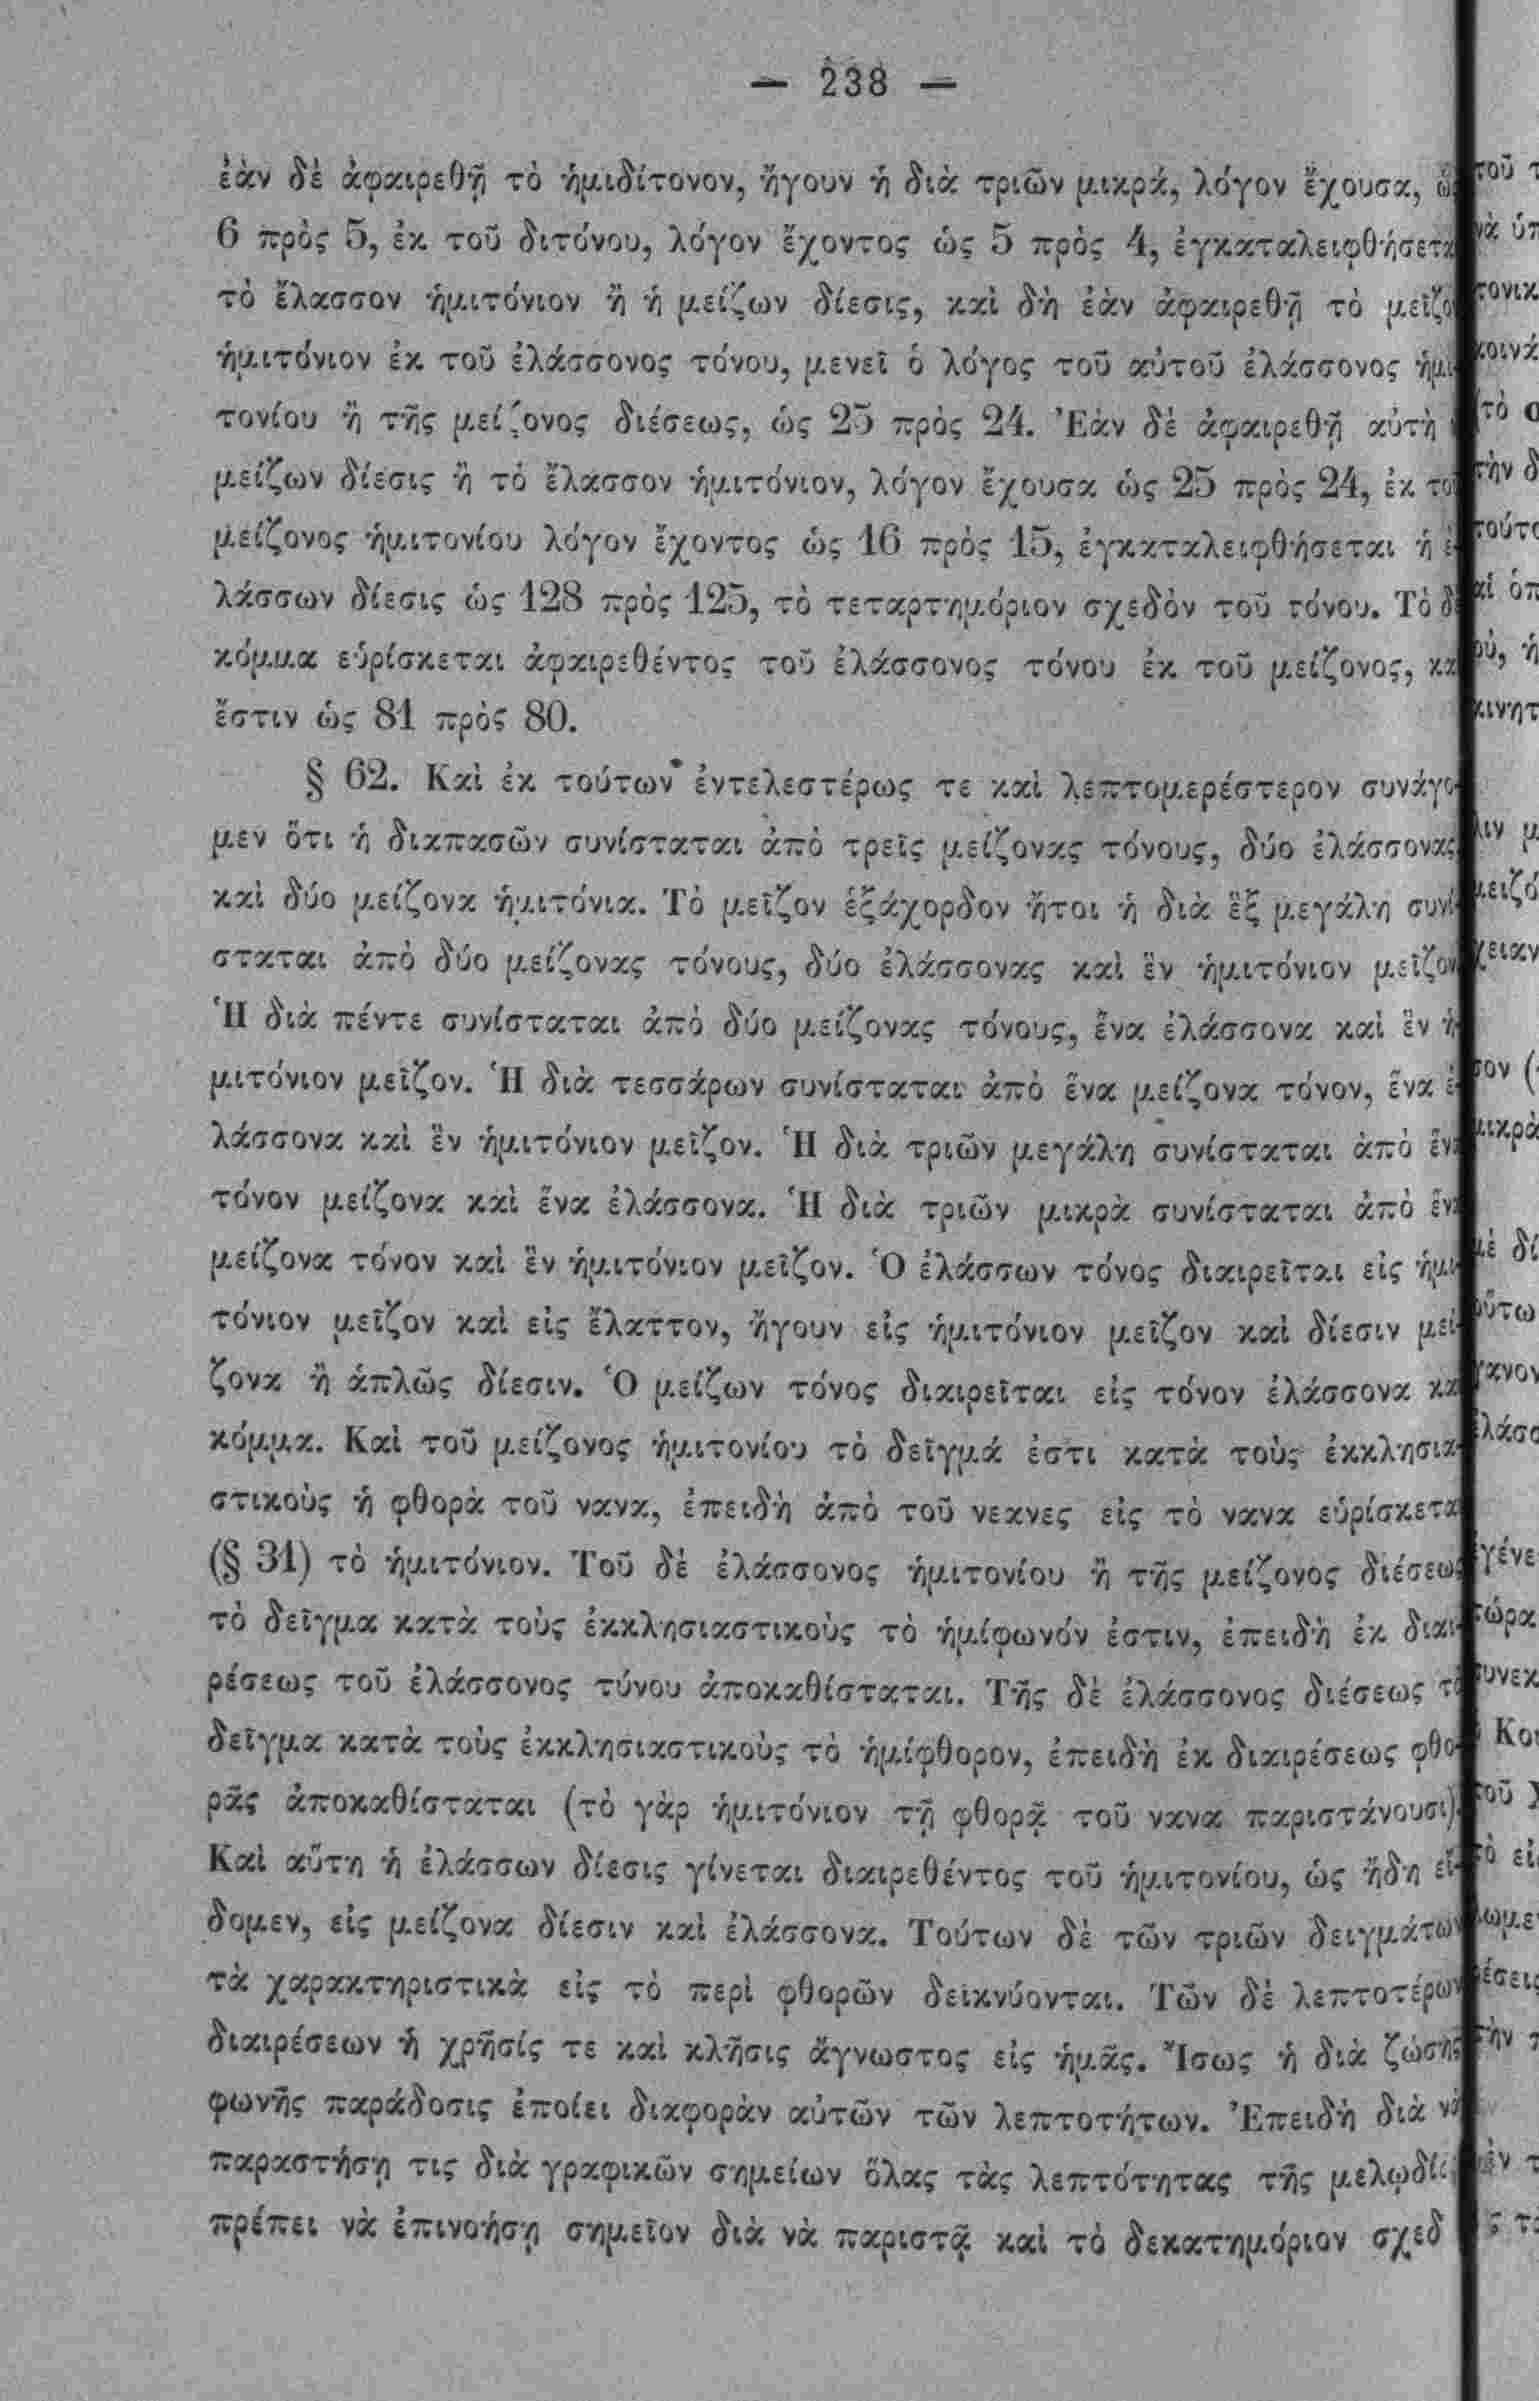 — 238 —
ἐὰν δὲ ἀφαιρεθῇ τὸ ἡμιδίτονον, ἤγουν ἡ διὰ τριῶν μικρά, λόγον ἔχουσα,
6 πρὸς 5, ἐκ τοῦ διτόνου, λόγον ἔχοντος ὡς 5 πρὸς 4, ἐγκαταλειφθήσετα
τὸ ἔλασσον ἡμιτόνιον ἢ ἡ μείζων δίεσις, καὶ δὴ ἐὰν ἀφαιρεθῇ τὸ μεῖζο
ἡμιτόνιον ἐκ τοῦ ἐλάσσονος τόνου, μενεῖ ὁ λόγος τοῦ αὐτοῦ ἐλάσσονος ἡμι
τονίου ἢ τῆς μείζονος διέσεως, ὡς 25 πρὸς 24. Ἐὰν δὲ ἀφαιρεθῇ αὐτὴ
μείζων δίεσις ἢ τὸ ἔλασσον ἡμιτόνιον, λόγον ἔχουσα ὡς 25 πρὸς 24, ἐκ το
μείζονος ἡμιτονίου λόγον ἔχοντος ὡς 16 πρὸς 15, ἐγκαταλειφθήσεται ἡ ἐ-
λάσσων δίεσις ὡς 128 πρὸς 125, τὸ τεταρτημόριον σχεδὸν τοῦ τόνου. Τὸ δὲ
κόμμα εὑρίσκεται ἀφαιρεθέντος τοῦ ἐλάσσονος τόνου ἐκ τοῦ μείζονος, κα
ἔστιν ὡς 81 πρὸς 80.
§ 62. Καὶ ἐκ τούτων ἐντελεστέρως τε καὶ λεπτομερέστερον συνάγο-
μεν ὅτι ἡ διαπασῶν συνίσταται ἀπὸ τρεῖς μείζονας τόνους, δύο ἐλάσσονας
καὶ δύο μείζονα ἡμιτόνια. Τὸ μεῖζον ἑξάχορδον ἤτοι ἡ διὰ ἓξ μεγάλη συνί-
σταται ἀπὸ δύο μείζονας τόνους, δύο ἐλάσσονας καὶ ἓν ἡμιτόνιον μεῖζον
Ἡ διὰ πέντε συνίσταται ἀπὸ δύο μείζονας τόνους, ἕνα ἐλάσσονα καὶ ἓν ἡ-
μιτόνιον μεῖζον. Ἡ διὰ τεσσάρων συνίσταται ἀπὸ ἕνα μείζονα τόνον, ἕνα ἐ-
λάσσονα καὶ ἓν ἡμιτόνιον μεῖζον. Ἡ διὰ τριῶν μεγάλη συνίσταται ἀπὸ ἕνα
τόνον μείζονα καὶ ἕνα ἐλάσσονα. Ἡ διὰ τριῶν μικρὰ συνίσταται ἀπὸ ἕνα
μείζονα τόνον καὶ ἓν ἡμιτόνιον μεῖζον. Ὁ ἐλάσσων τόνος διαιρεῖται εἰς ἡμι-
τόνιον μεῖζον καὶ εἰς ἔλαττον, ἤγουν εἰς ἡμιτόνιον μεῖζον καὶ δίεσιν μεί-
ζονα ἢ ἁπλῶς δίεσιν. Ὁ μείζων τόνος διαιρεῖται εἰς τόνον ἐλάσσονα κα
κόμμα. Καὶ τοῦ μείζονος ἡμιτονίου τὸ δεῖγμά ἐστι κατὰ τοὺς ἐκκλησια-
στικοὺς ἡ φθορὰ τοῦ νανα, ἐπειδὴ ἀπὸ τοῦ νεανες εἰς τὸ νανα εὑρίσκετα
(§ 31) τὸ ἡμιτόνιον. Τοῦ δὲ ἐλάσσονος ἡμιτονίου ἢ τῆς μείζονος διέσεως
τὸ δεῖγμα κατὰ τοὺς ἐκκλησιαστικοὺς τὸ ἡμίφωνόν ἐστιν, ἐπειδὴ ἐκ διαι-
ρέσεως τοῦ ἐλάσσονος τύνου ἀποκαθίσταται. Τῆς δὲ ἐλάσσονος διέσεως τὸ
δεῖγμα κατὰ τοὺς ἐκκλησιαστικοὺς τὸ ἡμίφθορον, ἐπειδὴ ἐκ διαιρέσεως φθο-
ρᾶς ἀποκαθίσταται (τὸ γὰρ ἡμιτόνιον τῇ φθορᾷ τοῦ νανα παριστάνουσι).
Καὶ αὕτη ἡ ἐλάσσων δίεσις γίνεται διαιρεθέντος τοῦ ἡμιτονίου, ὡς ἤδη εἴ-
δομεν, εἰς μείζονα δίεσιν καὶ ἐλάσσονα. Τούτων δὲ τῶν τριῶν δειγμάτων
τὰ χαρακτηριστικὰ εἰς τὸ περὶ φθορῶν δεικνύονται. Τῶν δὲ λεπτοτέρων
διαιρέσεων ἡ χρῆσίς τε καὶ κλῆσις ἄγνωστος εἰς ἡμᾶς. Ἴσως ἡ διὰ ζώσης
φωνῆς παράδοσις ἐποίει διαφορὰν αὐτῶν τῶν λεπτοτήτων. Ἐπειδὴ διὰ νὰ
παραστήσῃ τις διὰ γραφικῶν σημείων ὅλας τὰς λεπτότητας τῆς μελῳδί
πρέπει νὰ ἐπινοήσῃ σημεῖον διὰ νὰ παριστᾷ καὶ τὸ δεκατημόριον σχεδ